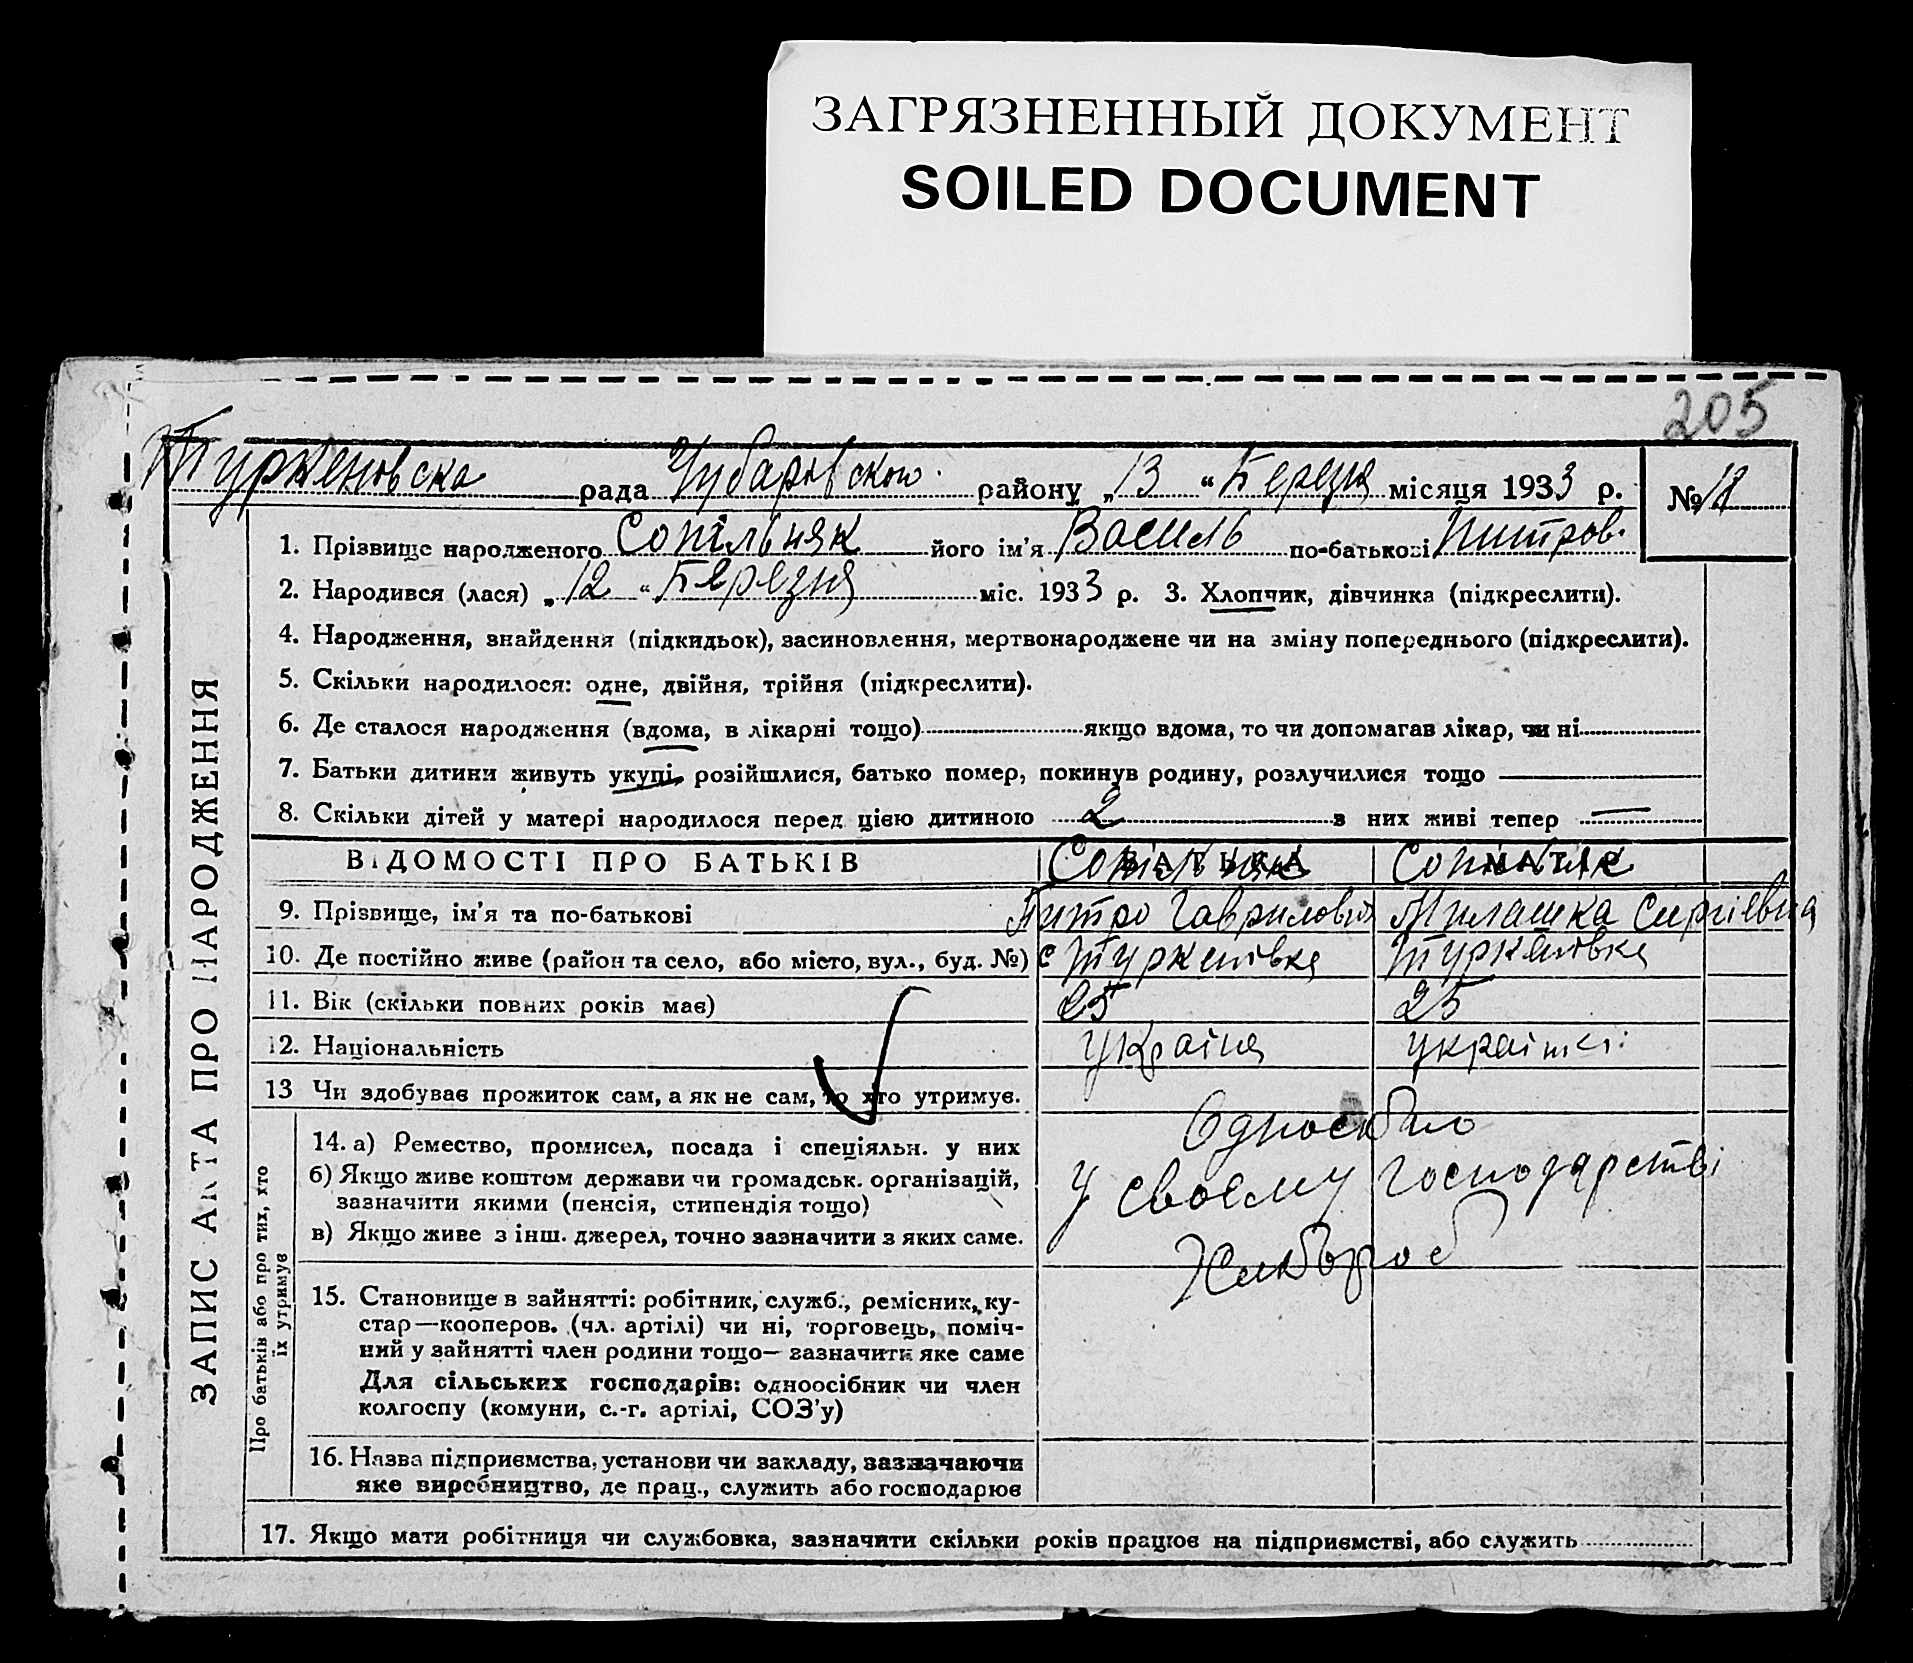 ЗАГРЯЗНЕННЫЙ ДОКУМЕНТ
SOILED DOCUMENT
205
Турженовска рада Чубаровского району „13“ Березня місяця 1933 р. № 18
ЗАПИС АКТА ПРО НАРОДЖЕННЯ
1. Прізвище народженого Сопільняк його ім’я Василь по-батькові Питров.
2. Народився (лася) „12“ Березня міс. 1933 р. 3. Хлопчик, дівчинка (підкреслити).
4. Народження, знайдення (підкидьок), засиновлення, мертвонароджене чи на зміну попереднього (підкреслити).
5. Скільки народилося: одне, двійня, трійня (підкреслити).
6. Де сталося народження (вдома, в лікарні тощо) якщо вдома, то чи допомагав лікар, чи ні
7. Батьки дитини живуть укупі, розійшлися, батько помер, покинув родину, розлучилися тощо —
8. Скільки дітей у матері народилося перед цією дитиною 2 з них живі тепер —
ВІДОМОСТІ ПРО БАТЬКІВ БАТЬКА МАТІР
Сопільняк Сопільняк
9. Прізвище, ім’я та по-батькові Питро Гаврилович Милашка Сиргіевна
10. Де постійно живе (район та село, або місто, вул., буд. №) с Турженівка Турженівка
11. Вік (скільки повних років має) 25 25
12. Національність україна
13 Чи здобуває прожиток сам, а як не сам, то хто утримує.
Про батьків або про тих, хто
їх утримує
14. а) Ремество, промисел, посада і спеціяльн. у них
б) Якщо живе коштом держави чи громадськ. організацій,
зазначити якими (пенсія, стипендія тощо)
в) Якщо живе з інш. джерел, точно зазначити з яких саме.
у своєму господарстві
Хлібороб
15. Становище в зайнятті: робітник, служб., ремісник, ку-
стар—кооперов. (чл. артілі) чи ні, торговець, поміч-
ний у зайнятті член родини тощо— зазначити яке саме
Для сільських господарів: одноосібник чи член
колгоспу (комуни, с.-г. артілі, СОЗ’у)
16. Назва підприємства, установи чи закладу, зазначаючи
яке виробництво, де прац., служить або господарює
17. Якщо мати робітниця чи службовка, зазначити скільки років працює на підприємстві, або служить